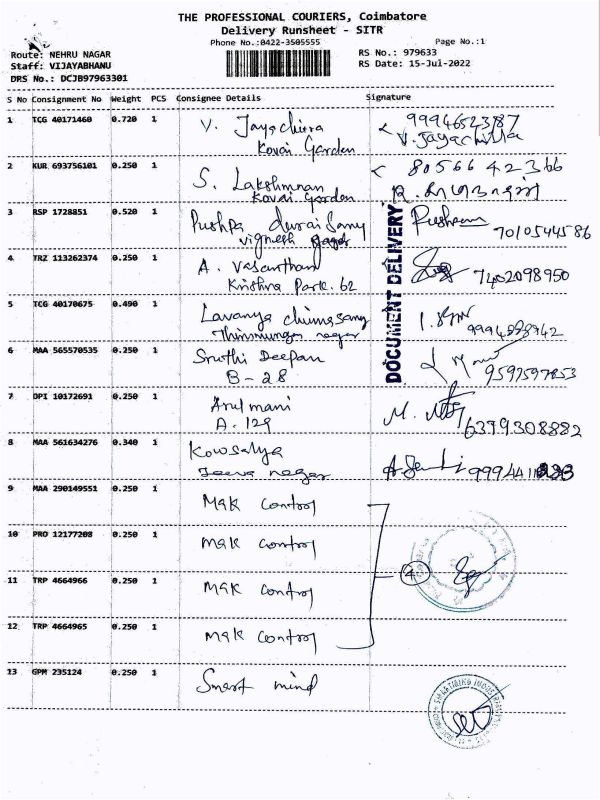 THE PROFESSIONAL COURIERS, Coimbatore
Delivery Runsheet - SITR
Phone No.:0422-3505555
Page No.:1
Route: NEHRU NAGAR
RS No.: 979633
Staff: VIJAYABHANU
RS Date: 15-Jul-2022
DRS No.: DCJB97963301
S No Consignment No Weight PCS Consignee Details Signature
1 TCG 40171460 0.720 1 V. Jayachitra 9994652387
Kovai Garden V. Jayachitra
2 KUR 693756101 0.250 1 S. Lakshmnan 80566 42366
Kovai Garden
3 RSP 1728851 0.520 1 Pushpa durai Samy
Vignesh nagar 7010544586
4 TRZ 113262374 0.250 1 A. Vasantham 7402098950
Krishna Park. 62
DOCUMENT DELIVERY
5 TCG 40170675 0.490 1 Lavanya
nagar
6 MAA 565570535 0.250 1 Sruthi Deepan
B - 28 9597597853
7 DPI 10172691 0.250 1 Arulmani M.
A. 129 6379308882
8 MAA 561634276 0.340 1 Kowsalya
Jeeva nagar
9 MAA 290149551 0.250 1 Mak Control
10 PRO 12177208 0.250 1 Mak Control
11 TRP 4664966 0.250 1 Mak Control 4
12 TRP 4664965 0.250 1 Mak Control
13 GPM 235124 0.250 1 Smart mind